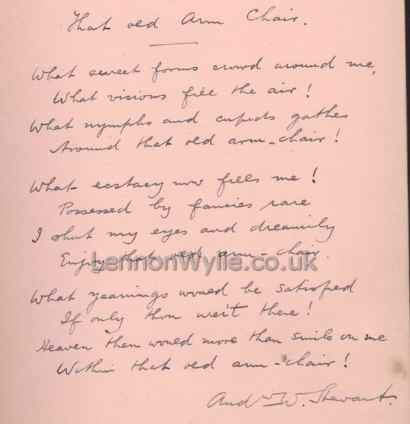 That old Arm Chair.
What sweet forms crowd around me,
What visions fill the air!
What nymphs and cupids gather
Around that old arm-chair!
What ecstacy now fills me!
Possessed by fancies rare
I shut my eyes and dreamily
Enjoy that old arm-chair.
LennonWylie.co.uk
What yearnings would be satisfied
If only thou wert there!
Heaven then would more than smile on me
Within that old arm-chair!
Andw W. Stewart.